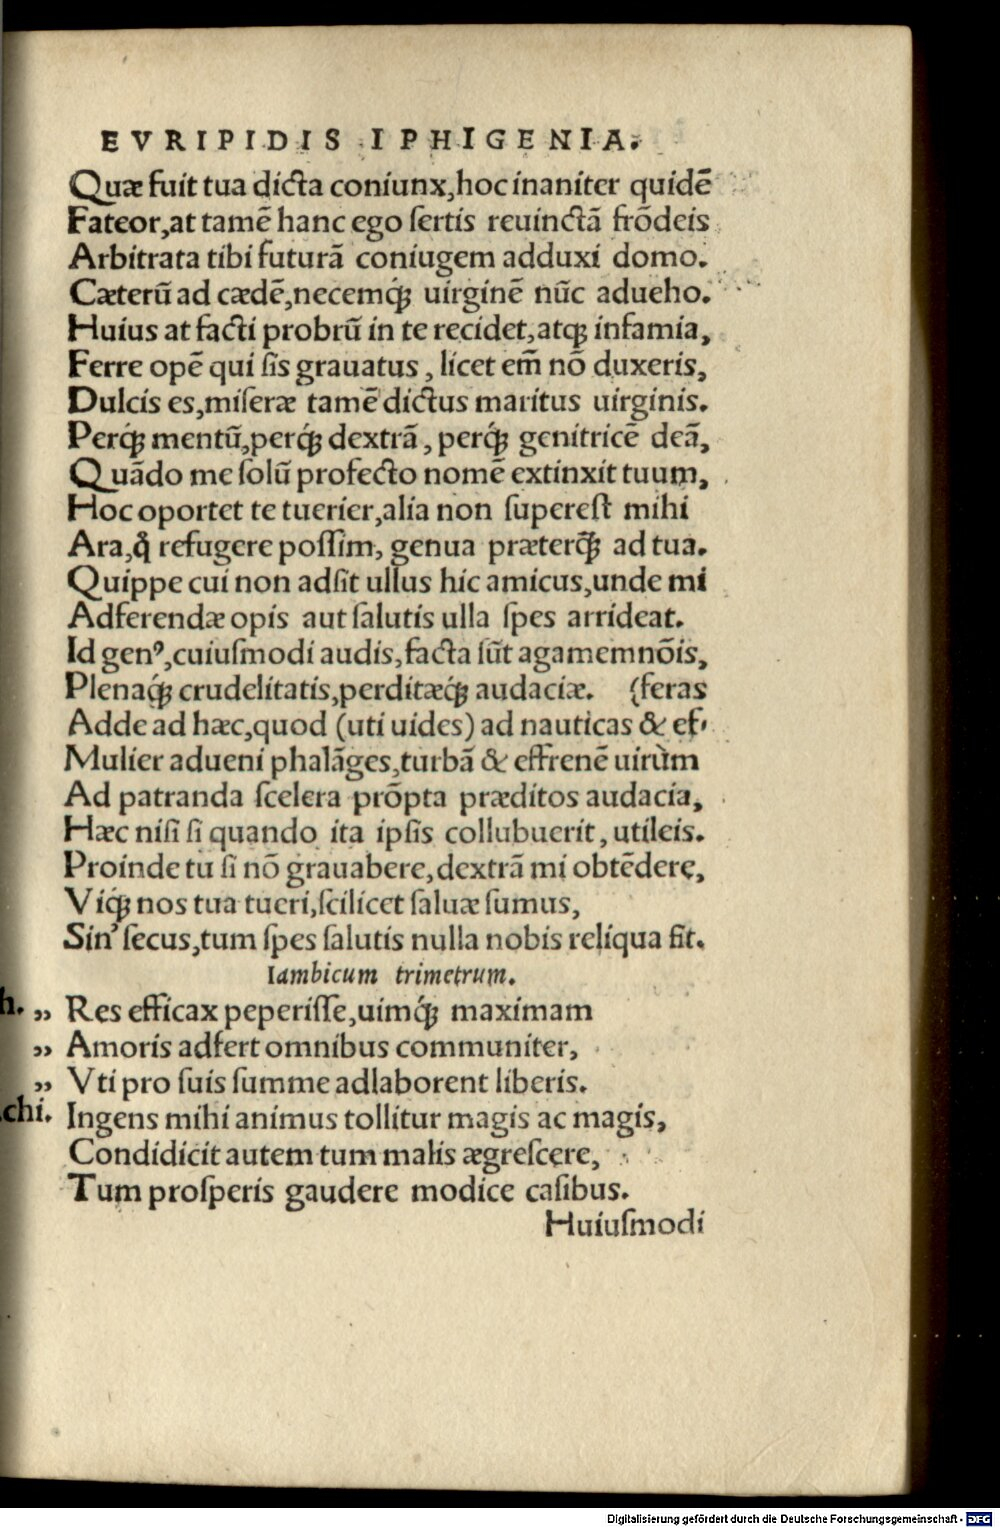 EVRIPIDIS IPHIGENIA.
Quæ fuit tua dicta coniunx,hoc inaniter quidē
Fateor,at tamē hanc ego ſertis reuinctā frōdeis
Arbitrata tibi futurā coniugem adduxi domo.
Cæterū ad cædē,necemq́ꝫ uirginē nūc adueho.
Huius at facti probrū in te recidet,atqꝫ infamia,
Ferre opē qui ſis grauatus, licet em̄ nō duxeris,
Dulcis es,miſeræ tamē dictus maritus uirginis.
Perq́ꝫ mentū,perq́ꝫ dextrā, perq́ꝫ genitricē deā,
Quādo me ſolū profecto nomē extinxit tuum,
Hoc oportet te tuerier,alia non ſupereſt mihi
Ara,q̊ refugere poſſim, genua præterq̄ꝫ ad tua.
Quippe cui non adſit ullus hic amicus,unde mi
Adferendæ opis aut ſalutis ulla ſpes arrideat.
Id genꝰ,cuiuſmodi audis,facta ſūt agamemnōis,
Plenaq́ꝫ crudelitatis,perditæq́ꝫ audaciæ. (feras
Adde ad hæc,quod (uti uides) ad nauticas & ef-
Mulier adueni phalāges,turbā & effrenē uirûm
Ad patranda ſcelera prōpta præditos audacia,
Hæc niſi ſi quando ita ipſis collubuerit, utileis.
Proinde tu ſi nō grauabere,dextrā mi obtēdere,
Viq́ꝫ nos tua tueri,ſcilicet ſaluæ ſumus,
Sin' ſecus,tum ſpes ſalutis nulla nobis reliqua ſit.
Iambicum trimetrum.
h. „ Res efficax peperiſſe,uimq́ꝫ maximam
„ Amoris adfert omnibus communiter,
„ Vti pro ſuis ſumme adlaborent liberis.
chi. Ingens mihi animus tollitur magis ac magis,
Condidicit autem tum malis ægreſcere,
Tum proſperis gaudere modice caſibus.
Huiuſmodi
Digitalisierung gefördert durch die Deutsche Forschungsgemeinschaft - DFG